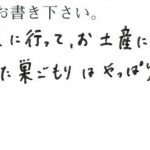 お書き下さい。
に行って、お土産に
た巣ごもりはやっぱり